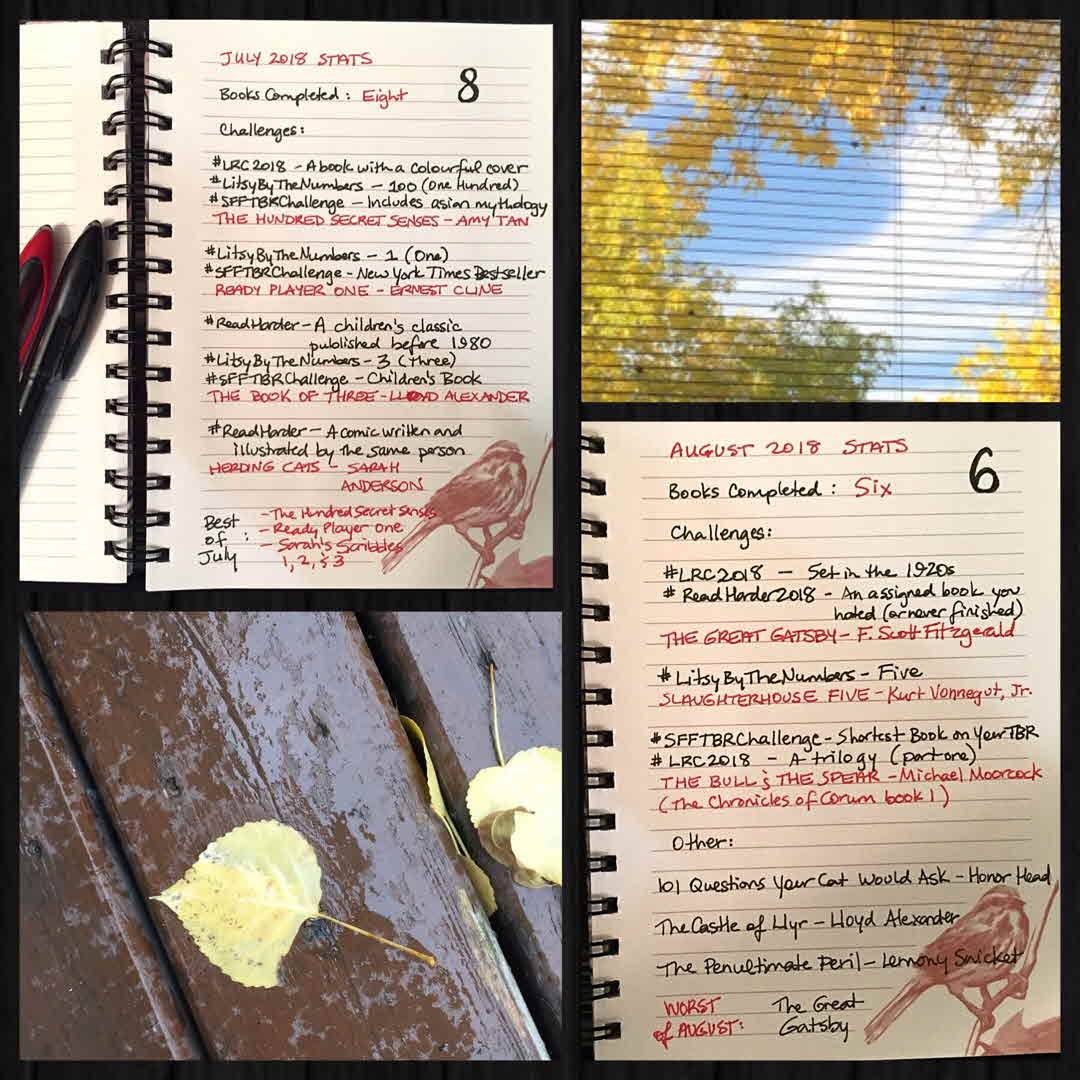 JULY 2018 STATS
8
Books Completed: Eight
Challenges:
#LRC2018 - A book with a colourful cover
#LitsyByTheNumbers - 100 (One hundred)
#SFFTBRChallenge - Includes asian mythology
THE HUNDRED SECRET SENSES - AMY TAN
#LitsyByTheNumbers - 1 (One)
#SFFTBRChallenge - New York Times Bestseller
READY PLAYER ONE - ERNEST CLINE
#ReadHarder - A children's classic
published before 1980
#LitsyByTheNumbers - 3 (three)
#SFFTBRChallenge - Children's Book
THE BOOK OF THREE - LLOYD ALEXANDER
#ReadHarder - A comic written and
illustrated by the same person
HERDING CATS - SARAH
ANDERSON
Best of July:
- The Hundred Secret Senses
- Ready Player One
- Sarah's Scribbles
1, 2, & 3
AUGUST 2018 STATS
6
Books Completed: Six
Challenges:
#LRC2018 - Set in the 1920s
#ReadHarder2018 - An assigned book you
hated (or never finished)
THE GREAT GATSBY - F. Scott Fitzgerald
#LitsyByTheNumbers - Five
SLAUGHTERHOUSE FIVE - Kurt Vonnegut, Jr.
#SFFTBRChallenge - Shortest Book on Your TBR
#LRC2018 - A trilogy (part one)
THE BULL & THE SPEAR - Michael Moorcock
(The Chronicles of Corum book 1)
Other:
101 Questions Your Cat Would Ask - Honor Head
The Castle of Llyr - Lloyd Alexander
The Penultimate Peril - Lemony Snicket
WORST The Great
of AUGUST: Gatsby